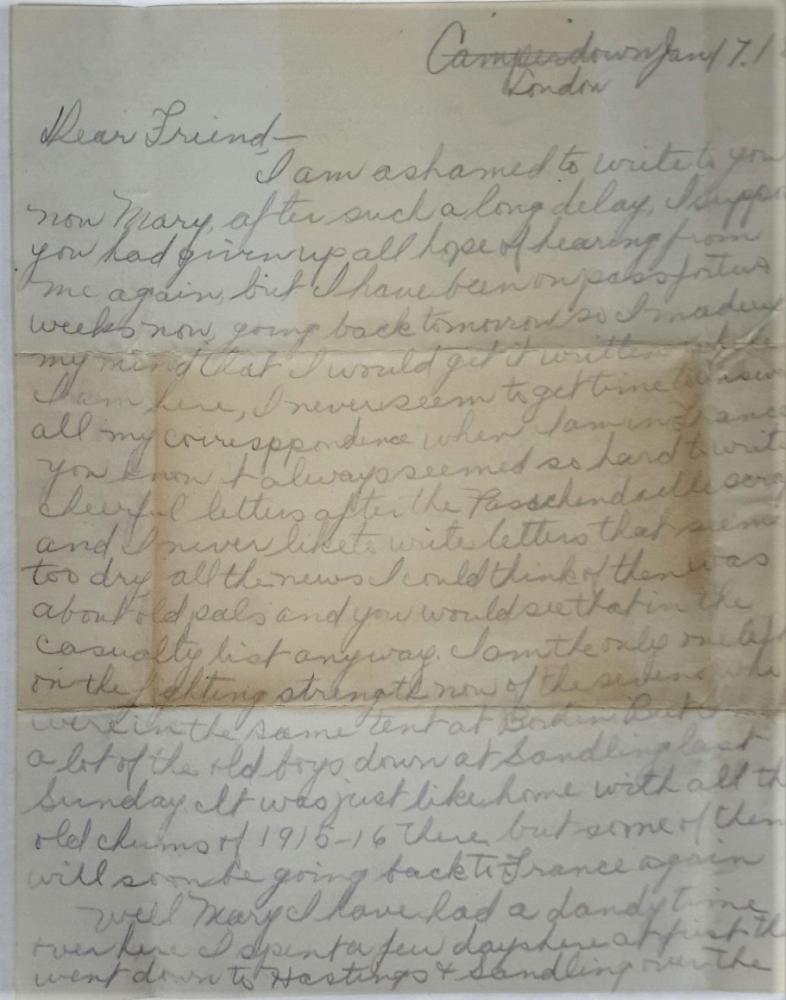 Camperdown Jan 17.1
London
Dear Friend—
I am ashamed to write to you
now Mary, after such a long delay, I suppo
you had given up all hope of hearing from
me again, but I have been on pass for two
weeks now, going back tomorrow so I made up
my mind that I would get it written while
I am here, I never seem to get time to answe
all my correspondence when I am in France
you know it always seemed so hard to write
cheerful letters after the Passchendaele scrap
and I never like to write letters that seem
too dry, all the news I could think of then was
about old pals and you would see that in the
casualty list anyway. I am the only one left
on the fighting strength now of the seven who
were in the same tent at Borden But
a lot of the old boys down at Sandling last
Sunday. It was just like home with all th
old chums of 1915-16 there but some of them
will soon be going back to France again
Well Mary I have had a dandy time
over here I spent a few days here at first th
went down to Hastings & Sandling over the